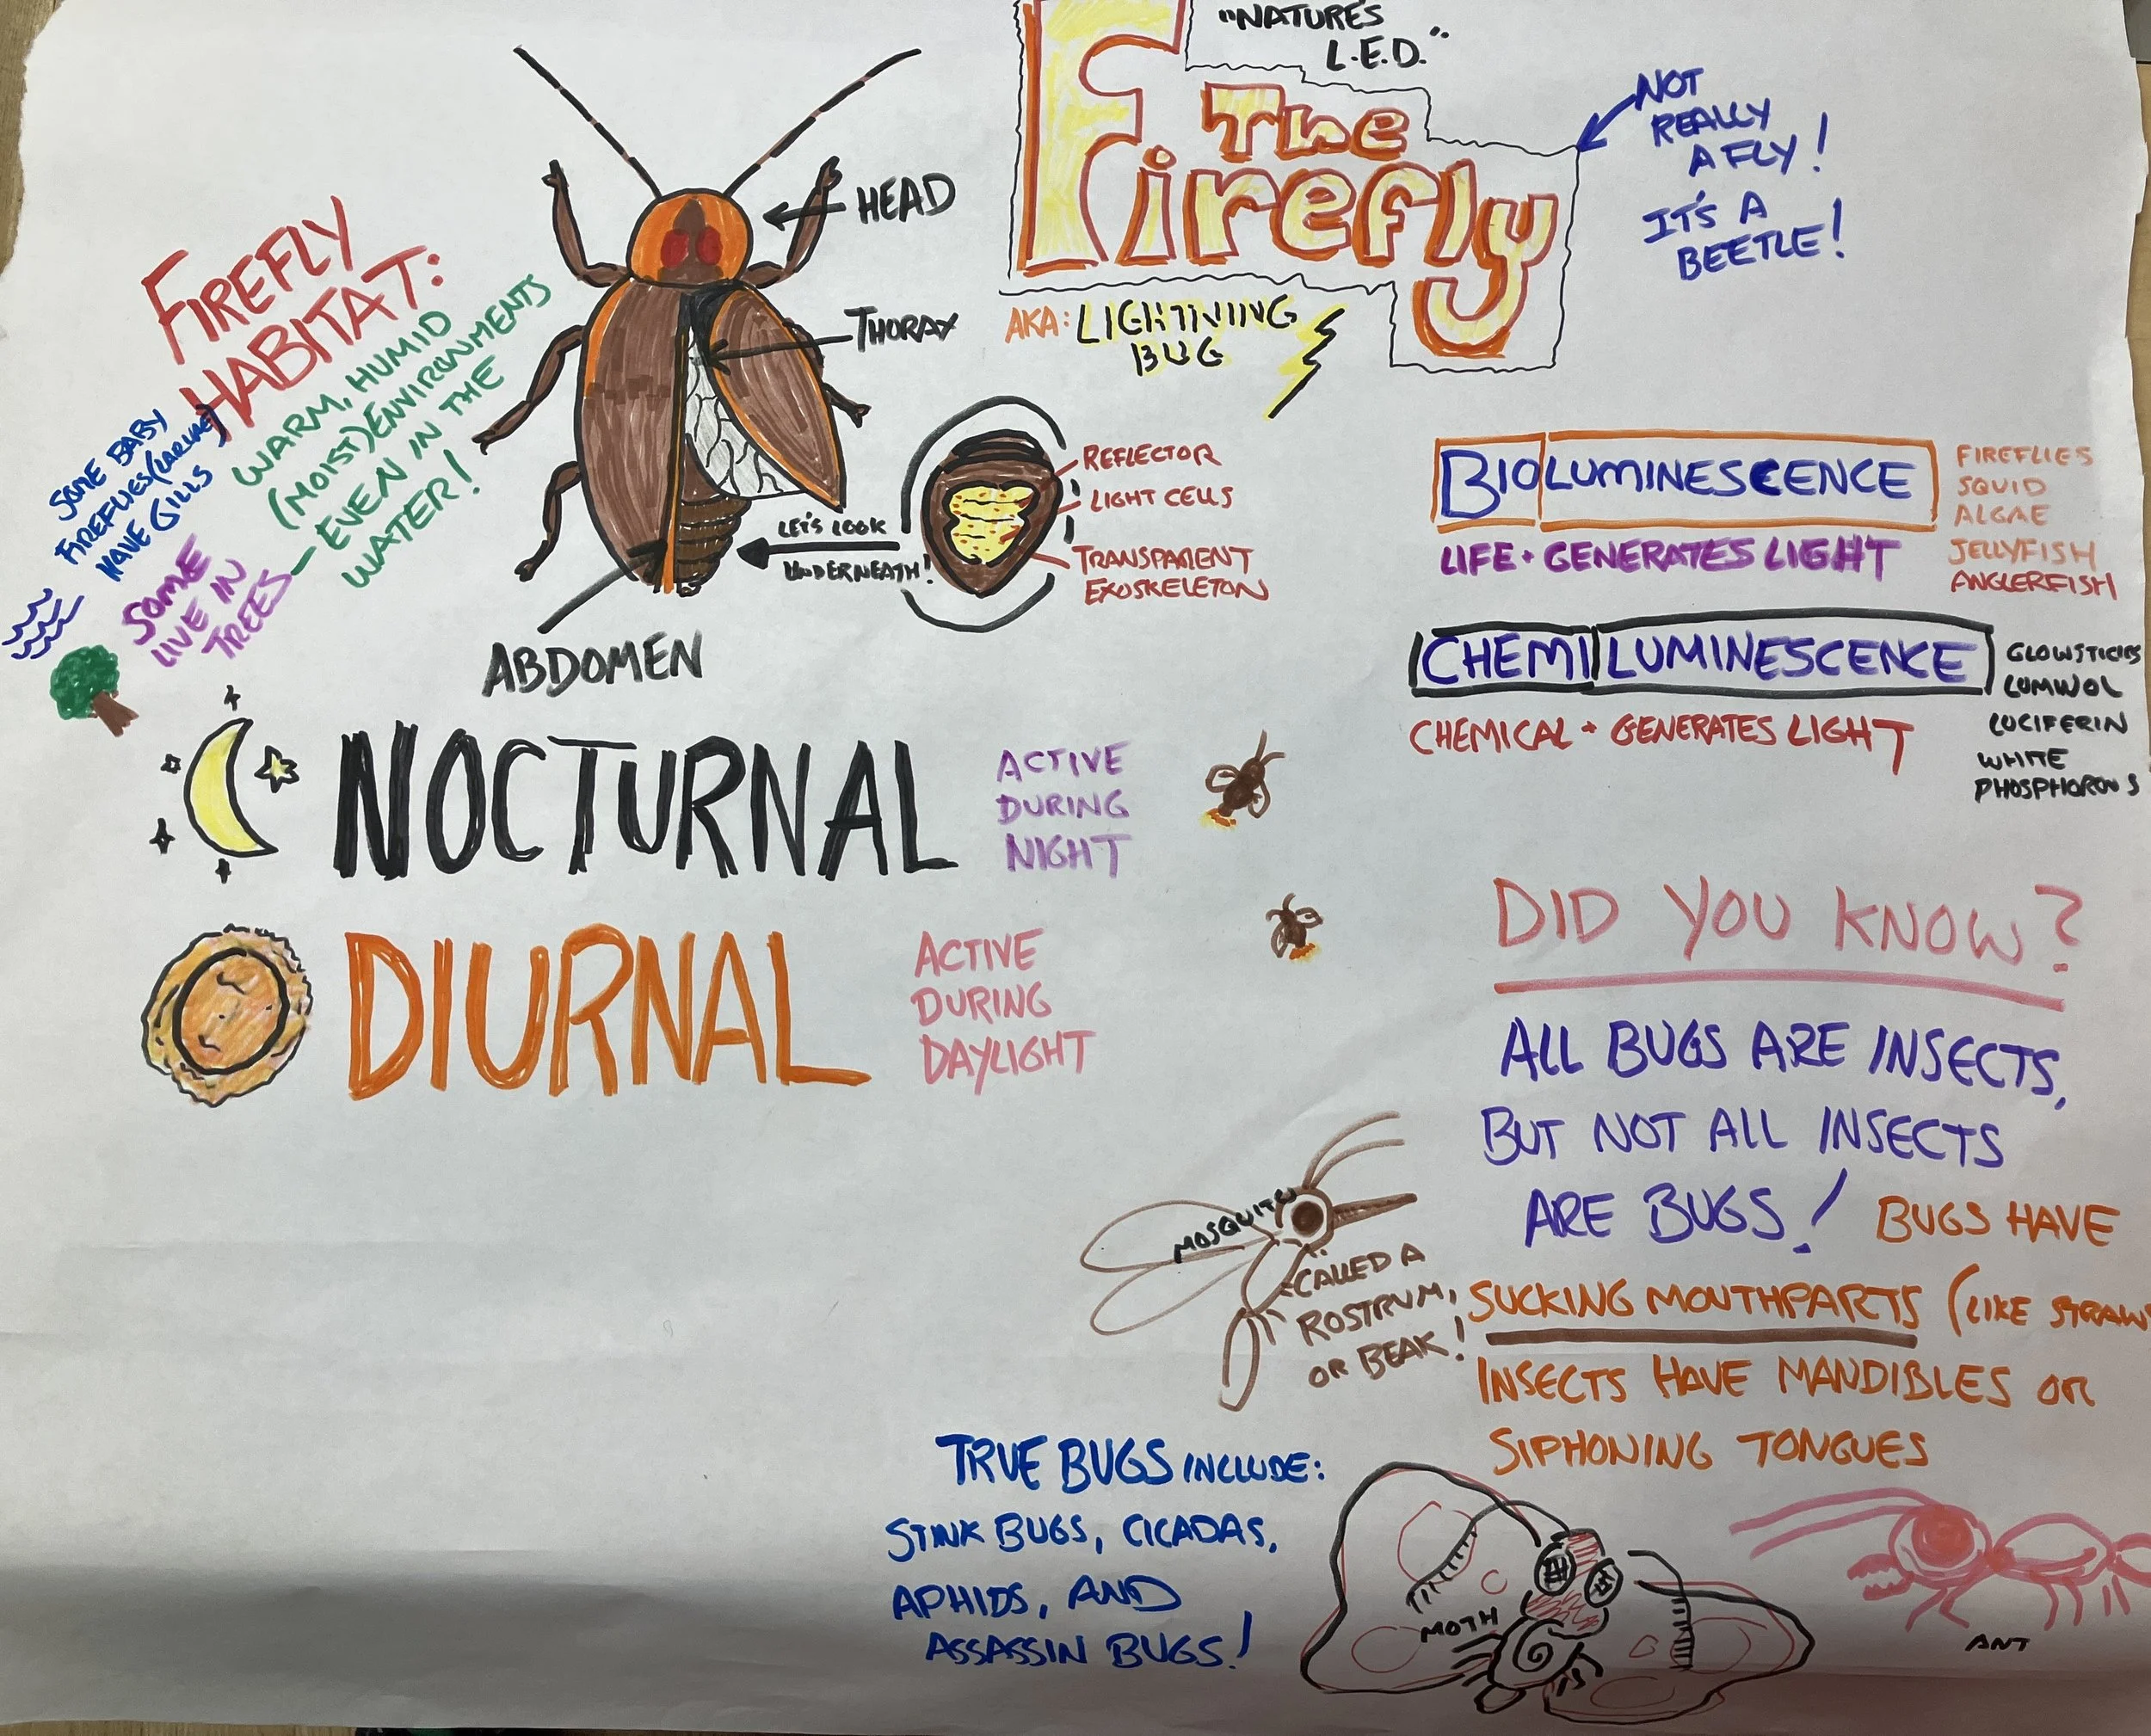 "NATURE'S
L.E.D."
The
Firefly
NOT
REALLY
A FLY!
IT'S A
BEETLE!
AKA: LIGHTNING
BUG
HEAD
THORAX
ABDOMEN
LET'S LOOK
UNDERNEATH!
REFLECTOR
LIGHT CELLS
TRANSPARENT
EXOSKELETON
FIREFLY
HABITAT:
WARM, HUMID
(MOIST) ENVIRONMENTS
— EVEN IN THE
WATER!
SOME BABY
FIREFLIES (LARVAE)
HAVE GILLS
SOME
LIVE IN
TREES
BIOLUMINESCENCE
LIFE + GENERATES LIGHT
FIREFLIES
SQUID
ALGAE
JELLYFISH
ANGLERFISH
CHEMILUMINESCENCE
CHEMICAL + GENERATES LIGHT
GLOWSTICKS
LUMINOL
LUCIFERIN
WHITE
PHOSPHOROUS
NOCTURNAL
ACTIVE
DURING
NIGHT
DIURNAL
ACTIVE
DURING
DAYLIGHT
DID YOU KNOW?
ALL BUGS ARE INSECTS,
BUT NOT ALL INSECTS
ARE BUGS! BUGS HAVE
SUCKING MOUTHPARTS (LIKE STRAWS
INSECTS HAVE MANDIBLES OR
SIPHONING TONGUES
MOSQUITO
CALLED A
ROSTRUM,
OR BEAK!
TRUE BUGS INCLUDE:
STINK BUGS, CICADAS,
APHIDS, AND
ASSASSIN BUGS!
MOTH
ANT